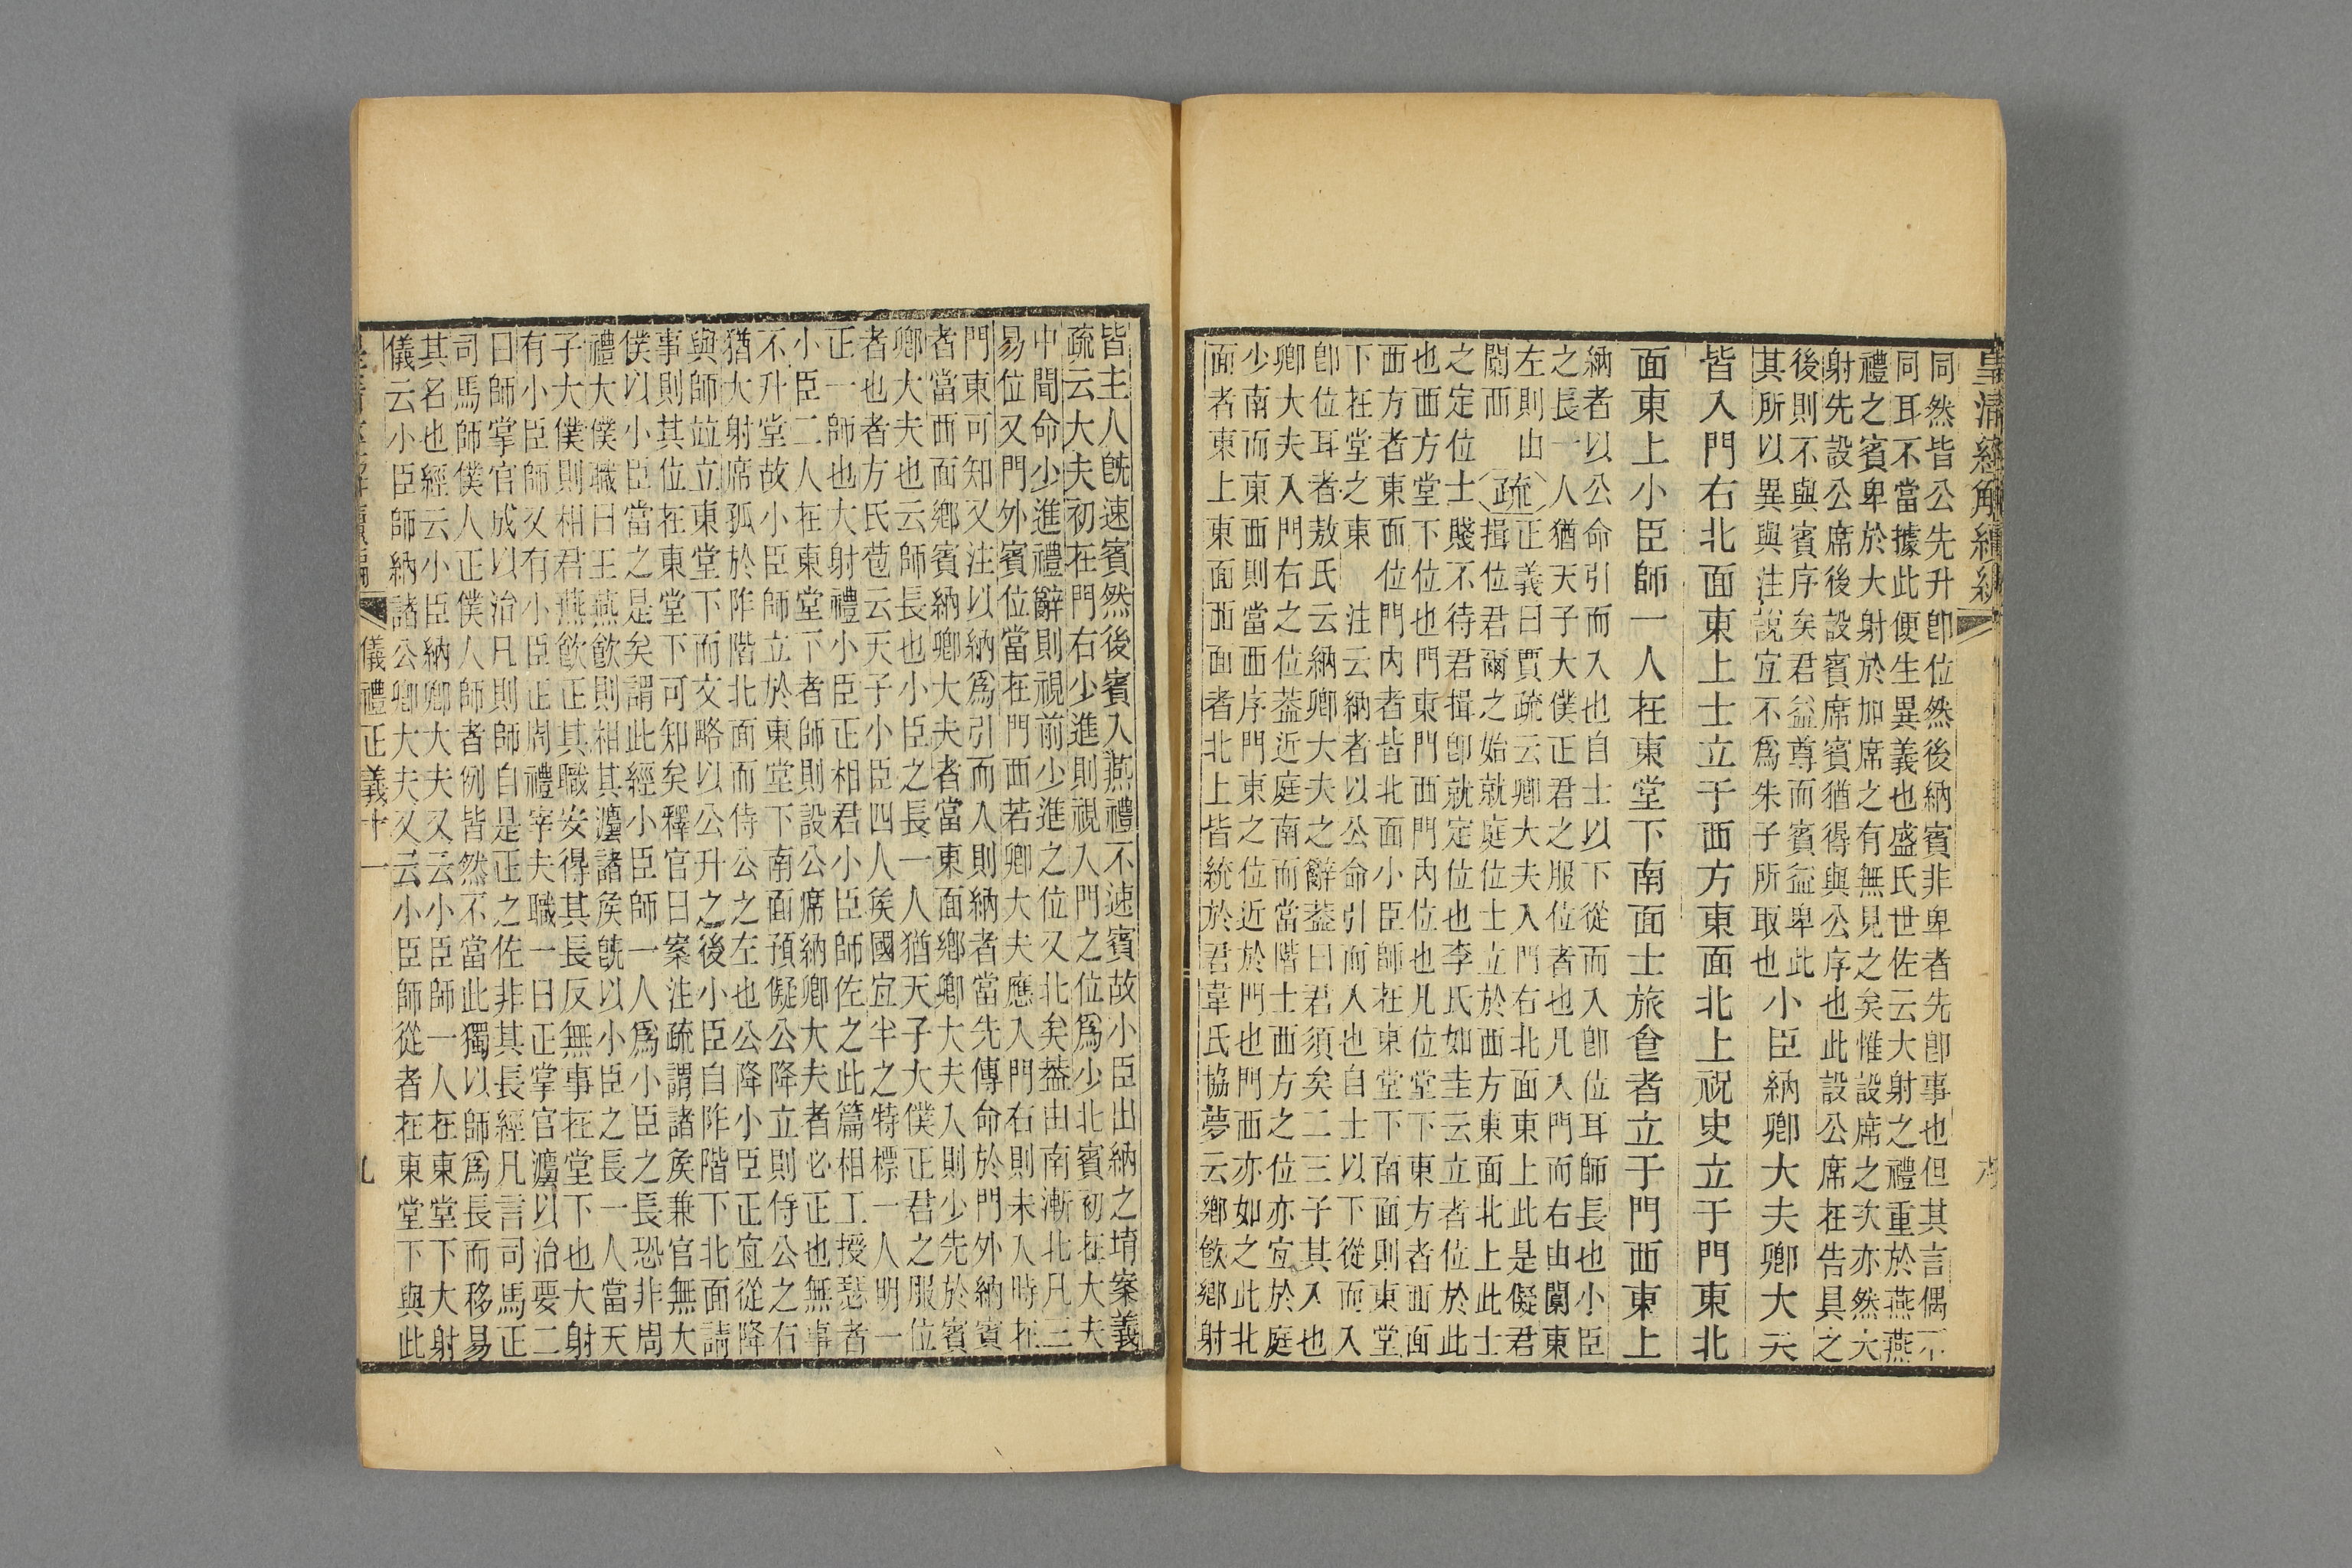 皇清經解續編
同然皆公先升卽位然後納賓非卑者先卽事也但其言偶不
同耳不當據此便生異義也盛氏世佐云大射之禮重於燕燕
禮之賓卑於大射於加席之有無見之矣惟設席之次亦然大
射先設公席後設賓席賓猶得與公序也此設公席在告具之
後則不與賓序矣君益尊而賓益卑此
其所以異與注說宜不爲朱子所取也
小臣納卿大夫卿大夫
皆入門右北面東上士立于西方東面北上祝史立于門東北
面東上小臣師一人在東堂下南面士旅食者立于門西東上
納者以公命引而入也自士以下從而入卽位耳師長也小臣
之長一人猶天子大僕正君之服位者也凡入門而右由闑東
左則由
闑西
疏
正義曰賈疏云卿大夫入門右北面東上此是儗君
揖位君爾之始就庭位士立於西方東面北上此士
之定位士賤不待君揖卽就定位也李氏如圭云立者位於此
也西方堂下位也門東門西門內位也凡位堂下東方者西面
西方者東面位門內者皆北面小臣師在東堂下南面則東堂
下在堂之東
注云納者以公命引而入也自士以下從而入
卽位耳者敖氏云納卿大夫之辭蓋曰君須矣二三子其入也
卿大夫入門右之位蓋近庭南而當階士西方之位亦宜於庭
少南而東西則當西序門東之位近於門也門西亦如之此北
面者東上東面西面者北上皆統於君韋氏協夢云鄉飲鄉射
皆主人旣速賓然後賓入燕禮不速賓故小臣出納之堉案義
疏云大夫初在門右少進則視入門之位爲少北賓初在大夫
中間命少進禮辭則視前少進之位又北矣蓋由南漸北凡三
易位又門外賓位當在門西若卿大夫應入門右則未入時在
門東可知又注以納爲引而入則納者當先傳命於門外納賓
者當西面鄉賓納卿大夫者當東面鄉卿大夫入則少先於賓
卿大夫也云師長也小臣之長一人猶天子大僕正君之服位
者也者方氏苞云天子小臣四人矦國宜半之特標一人明一
正一師也大射禮小臣正相君小臣師佐之此篇相工授瑟者
小臣二人在東堂下者師則設公席納卿大夫者必正也無事
不升堂故小臣師立於東堂下南面預儗公降立則侍公之右
猶大射席孤於阼階北面而侍公之左也公降小臣正宜從降
與師竝立東堂下而文略以公升之後小臣自阼階下北面請
事則其位在東堂下可知矣釋官曰案注疏謂諸矦兼官無大
僕以小臣當之是矣謂此經小臣師一人爲小臣之長恐非周
禮大僕職曰王燕飮則相其灋諸矦旣以小臣之長一人當天
子大僕則相君燕飮正其職安得其長反無事在堂下也大射
有小臣師又有小臣正周禮宰夫職一曰正掌官灋以治要二
曰師掌官成以治凡則師自是正之佐非其長經凡言司馬正
司馬師僕人正僕人師者例皆然不當此獨以師爲長而移易
其名也經云小臣納卿大夫又云小臣師一人在東堂下大射
儀云小臣師納諸公卿大夫又云小臣師從者在東堂下與此
儀禮正義十一
九